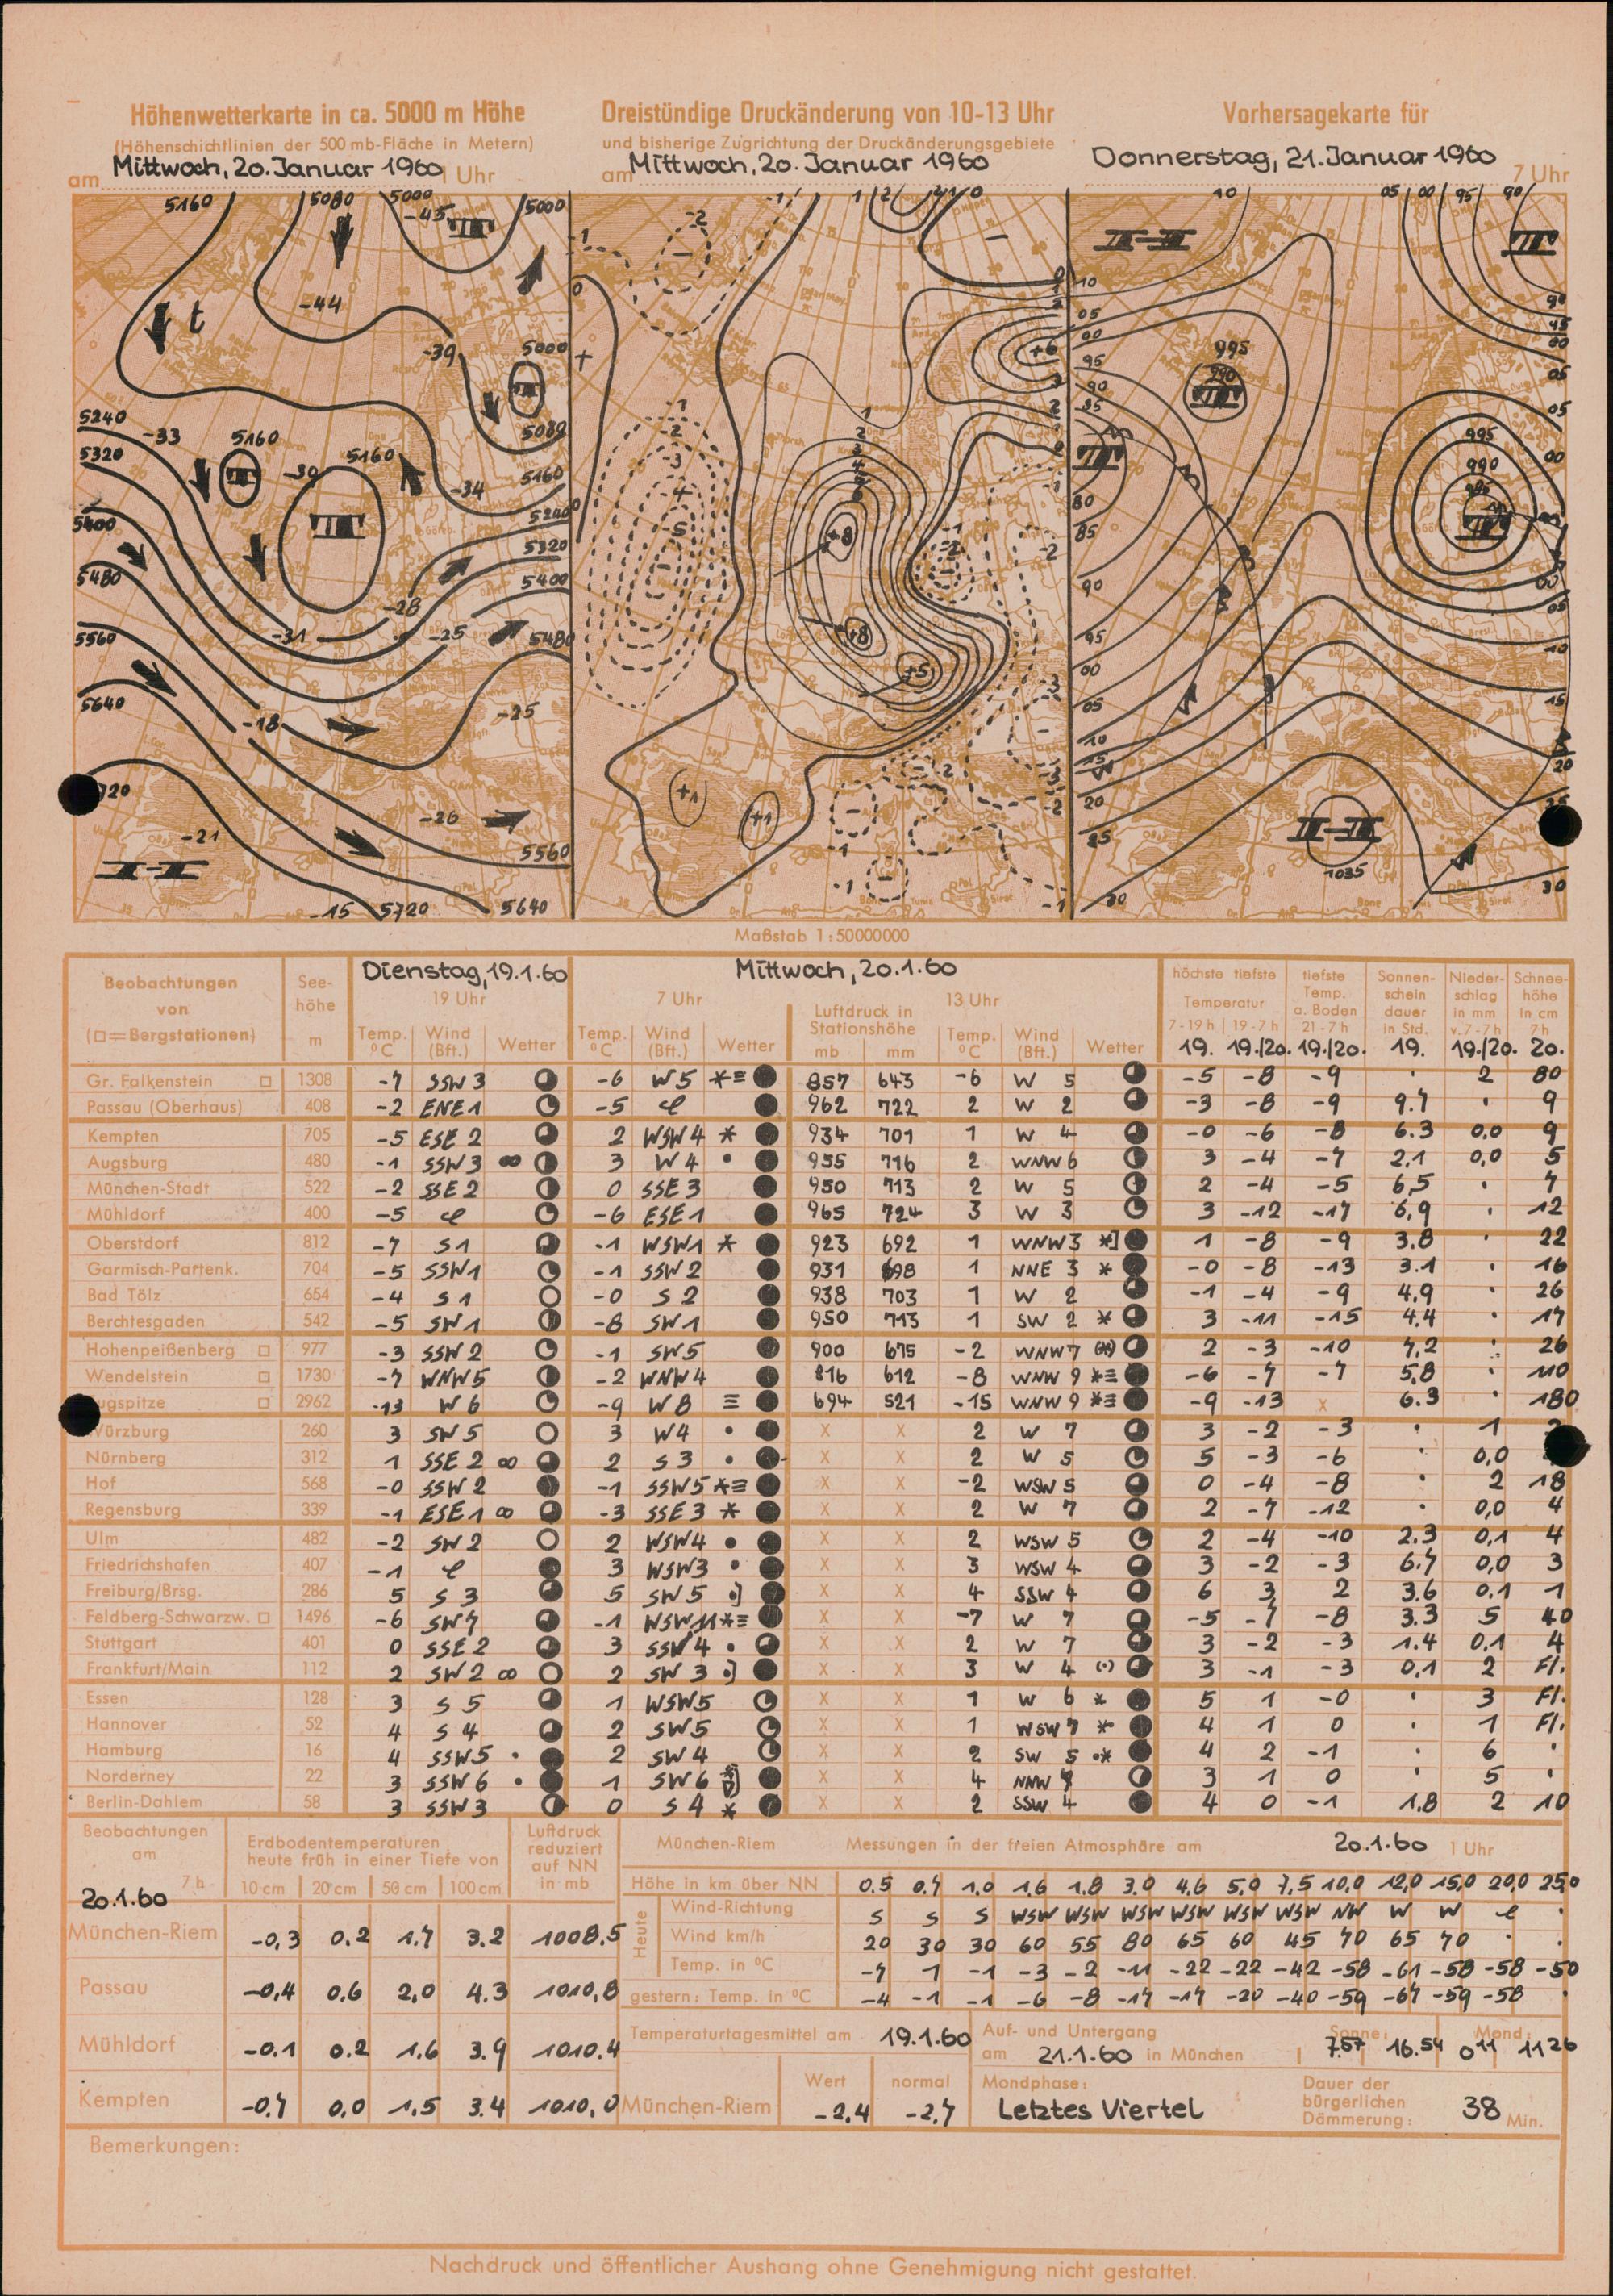 Höhenwetterkarte in ca. 5000 m Höhe
(Höhenschichtlinien der 500 mb-Fläche in Metern)
am Mittwoch, 20. Januar 1960 1 Uhr
Dreistündige Druckänderung von 10-13 Uhr
und bisherige Zugrichtung der Druckänderungsgebiete
am Mittwoch, 20. Januar 1960
Vorhersagekarte für
Donnerstag, 21. Januar 1960 7 Uhr
5160 5080 5000 -45 5000
-44 t -39 5000
5240 -33 5160 5160 5080
5320 -30 -34 5160
5400 5240
5480 5320
5400
-28
5560 -31 -25 5480
5640 -18 -25
-21 -26 5560
-15 5720 5640
-1 -2 1 2 0
+ +6
+8
+8
+5
+1 +1
10 05 00 95 90
995
990
995
990
1035
30
Maßstab 1:50000000
Beobachtungen von (□=Bergstationen) Seehöhe m Dienstag, 19.1.60 Mittwoch, 20.1.60
19 Uhr 7 Uhr 13 Uhr
Temp. °C Wind (Bft.) Wetter Temp. °C Wind (Bft.) Wetter Luftdruck in Stationshöhe mb mm Temp. °C Wind (Bft.) Wetter
höchste tiefste Temperatur 7-19h 19-7h tiefste Temp. a. Boden 21-7h Sonnen-schein dauer in Std. Nieder-schlag in mm v. 7-7h Schnee-höhe in cm 7h
19. 19./20. 19./20. 19. 19./20. 20.
Gr. Falkenstein □ 1308 -7 SSW 3 -6 W5 *≡ 857 643 -6 W 5 -5 -8 -9 · 2 80
Passau (Oberhaus) 408 -2 ENE1 -5 962 722 2 W 2 -3 -8 -9 9.7 · 9
Kempten 705 -5 ESE 2 2 WSW4 * 934 701 1 W 4 -0 -6 -8 6.3 0,0 9
Augsburg 480 -1 SSW3 ∞ 3 W4 • 955 716 2 WNW6 3 -4 -7 2,1 0,0 5
München-Stadt 522 -2 SSE2 0 SSE3 950 713 2 W 5 2 -4 -5 6,5 · 7
Mühldorf 400 -5 -6 ESE1 965 724 3 W 3 3 -12 -17 6,9 · 12
Oberstdorf 812 -7 S1 -1 WSW1 * 923 692 1 WNW3 *] 1 -8 -9 3.8 · 22
Garmisch-Partenk. 704 -5 SSW1 -1 SSW2 931 698 1 NNE 3 * -0 -8 -13 3.1 · 16
Bad Tölz 654 -4 S1 -0 S2 938 703 1 W 2 -1 -4 -9 4,9 · 26
Berchtesgaden 542 -5 SW1 -8 SW1 950 713 1 SW 2 * 3 -11 -15 4.4 · 17
Hohenpeißenberg □ 977 -3 SSW2 -1 SW5 900 675 -2 WNW7 (*) 2 -3 -10 7,2 · 26
Wendelstein □ 1730 -7 WNW5 -2 WNW4 816 612 -8 WNW 9 *≡ -6 -7 -7 5,8 · 110
ugspitze □ 2962 -13 W6 -9 W8 ≡ 694 521 -15 WNW 9 *≡ -9 -13 x 6.3 · 180
Würzburg 260 3 SW5 3 W4 • x x 2 W 7 3 -2 -3 · 1
Nürnberg 312 1 SSE 2 ∞ 2 S3 • x x 2 W 5 5 -3 -6 · 0,0
Hof 568 -0 SSW2 -1 SSW5 *≡ x x -2 WSW5 0 -4 -8 · 2 18
Regensburg 339 -1 ESE1 ∞ -3 SSE3 * x x 2 W 7 2 -7 -12 · 0,0 4
Ulm 482 -2 SW2 2 WSW4 • x x 2 WSW5 2 -4 -10 2.3 0,1 4
Friedrichshafen 407 -1 3 WSW3 • x x 3 WSW 4 3 -2 -3 6.7 0,0 3
Freiburg/Brsg. 286 5 S 3 5 SW5 •] x x 4 SSW 4 6 3 2 3.6 0.1 1
Feldberg-Schwarzw. □ 1496 -6 SW7 -1 WSW11 *≡ x x -7 W 7 -5 -7 -8 3.3 5 40
Stuttgart 401 0 SSE2 3 SSW4 • x x 2 W 7 3 -2 -3 1.4 0,1 4
Frankfurt/Main 112 2 SW2 ∞ 2 SW3 •] x x 3 W 4 (•) 3 -1 -3 0,1 2 Fl.
Essen 128 3 S5 1 WSW5 x x 1 W 6 * 5 1 -0 · 3 Fl.
Hannover 52 4 S4 2 SW5 x x 1 WSW7 * 4 1 0 · 1 Fl.
Hamburg 16 4 SSW5 • 2 SW4 x x 2 SW 5 •* 4 2 -1 · 6 ·
Norderney 22 3 SSW6 • 1 SW6 x x 4 NNW 3 1 0 · 5 ·
Berlin-Dahlem 58 3 SSW3 0 S4 * x x 2 SSW 4 4 0 -1 1.8 2 10
Beobachtungen am 20.1.60 7h Erdbodentemperaturen heute früh in einer Tiefe von 10 cm 20 cm 50 cm 100 cm Luftdruck reduziert auf NN in mb
München-Riem -0,3 0.2 1.7 3.2 1008.5
Passau -0,4 0.6 2,0 4.3 1010,8
Mühldorf -0.1 0.2 1.6 3.9 1010.4
Kempten -0.7 0,0 1.5 3.4 1010,0
München-Riem Messungen in der freien Atmosphäre am 20.1.60 1 Uhr
Höhe in km über NN 0.5 0.7 1.0 1.6 1.8 3.0 4.6 5.0 7.5 10,0 12,0 15,0 20,0 25,0
Heute Wind-Richtung S S S WSW WSW WSW WSW WSW WSW NW W W
Wind km/h 20 30 30 60 55 80 65 60 45 70 65 70 · ·
Temp. in °C -7 1 -1 -3 -2 -11 -22 -22 -42 -58 -61 -58 -58 -50
gestern: Temp. in °C -4 -1 -1 -6 -8 -17 -17 -20 -40 -59 -67 -59 -58 ·
Temperaturtagesmittel am 19.1.60
Wert normal
München-Riem -2,4 -2,7
Auf- und Untergang am 21.1.60 in München Sonne: 7.57 16.54 Mond: 0 11 11 26
Mondphase: Letztes Viertel
Dauer der bürgerlichen Dämmerung: 38 Min.
Bemerkungen:
Nachdruck und öffentlicher Aushang ohne Genehmigung nicht gestattet.